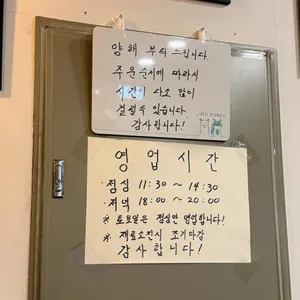 양해 부탁드립니다.
주문순서에 따라서
시간이 다소 많이
걸릴수 있습니다
감사합니다!
영업시간
· 점심 11:30 ~ 14:30
· 저녁 18:00 ~ 20:00
※ 토요일은 점심만 영업합니다!
※ 재료소진시 조기마감
감사합니다!